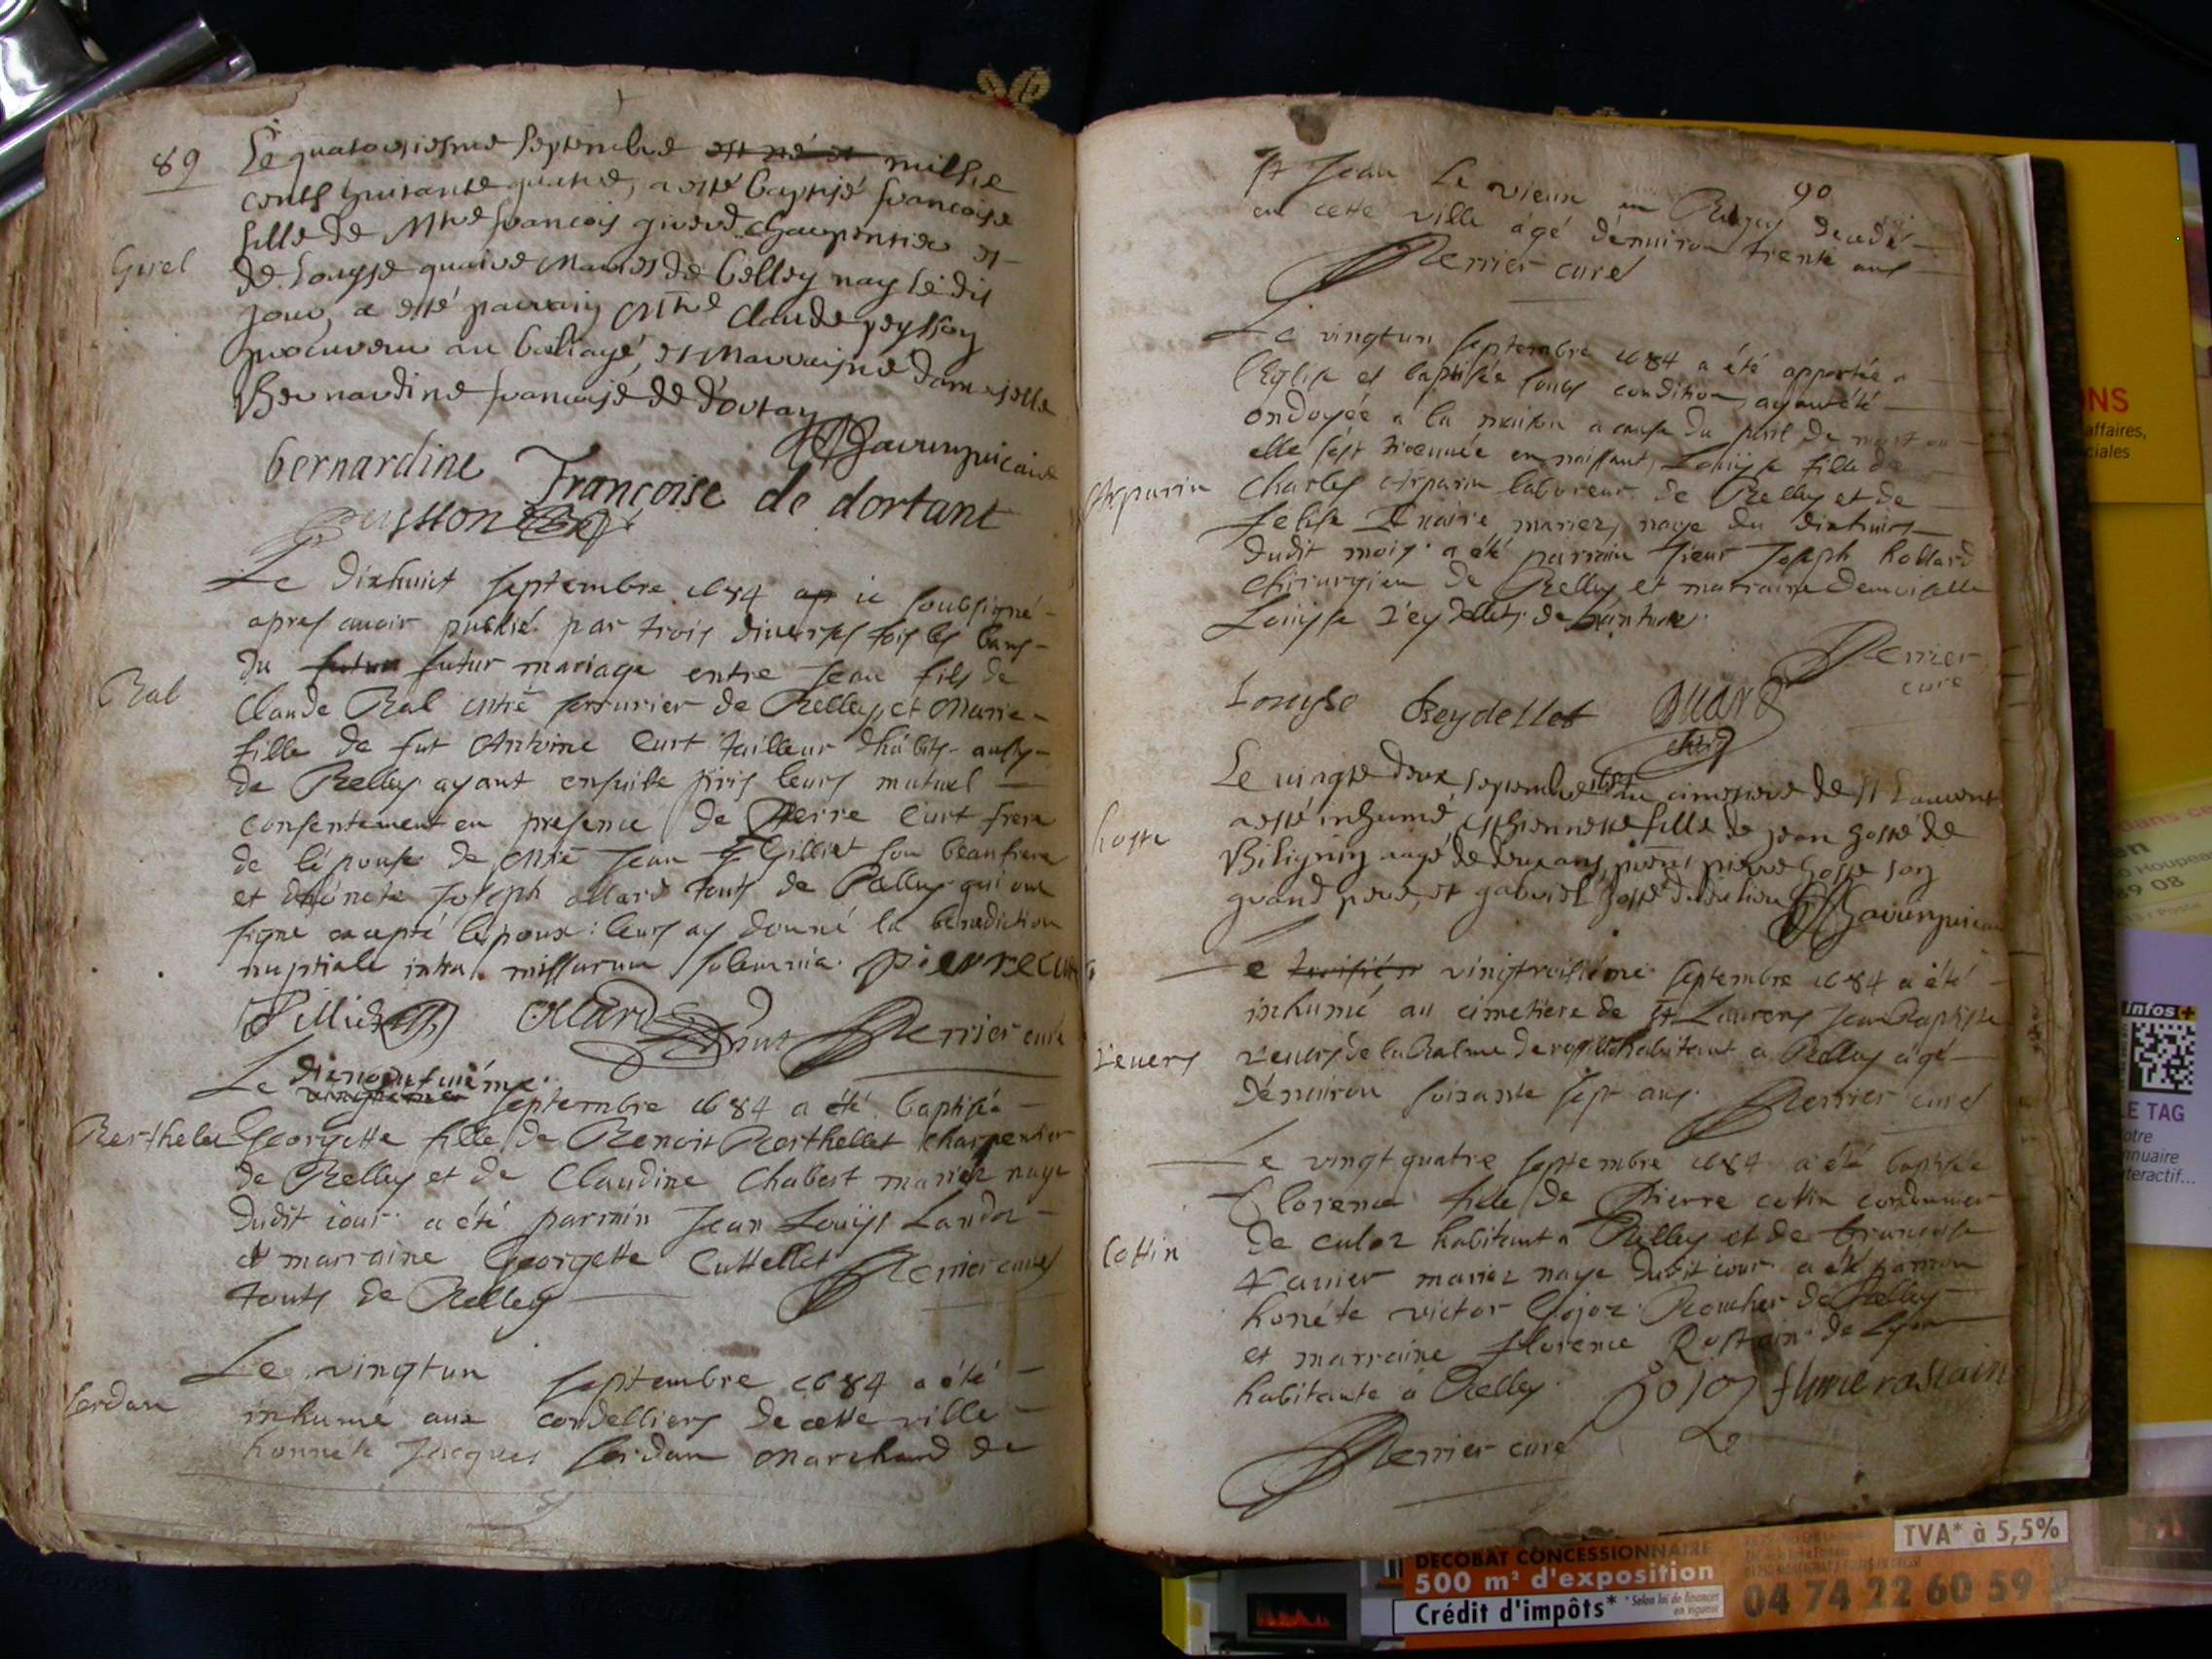 89
Le quatorsiesme septembre est né et mil six
cents huitante quatre, a esté baptisé francoise
fille de Mtre francois girerd charpentier et
Girel
de Louyse mariés de belley nay le dit
jour, a esté parrain Mtre Claude peysson
procureur au baliage, et Marrayne damoyselle
Bernardine francoise de dortan
bernardine Françoise de dortant
peysson
Le dixhuict septembre 1684 ap ie soubsigné
apres avoir publié par trois diverses fois les bans
du futur futur mariage entre Jean fils de
Bal
Claude Bal mtre serrurier de Belley et Marie
fille de fut Antoine Curt tailleur dhabits aussy
de Belley ayant ensuite pris leurs mutuel
consentement en presence de Pierre Curt frere
de lépouse de mtre Jean Gilliet son beaufrere
et dhonete Joseph ollard touts de Belley qui ont
signe excepté lepoux: leurs ay donné la benediction
nuptiale intra missarum solemnia. pierre curt
Gilliet ollard Perrier curé
Le dixneufuiéme
vingtieme septembre 1684 a été baptisée
Berthelet
Georgette fille de Benoit Berthellet charpentier
de Belley et de Claudine Chabert mariez naye
dudit iour a été parrain Jean Louijs Landoz
et marraine Georgette Cuttellet Perrier curé
touts de Belley
Le vingtun septembre 1684 a été
Serdan
inhumé aux cordelliers de cette ville
honnete Jacques Serdan Marchand de
90
St Jean Le vieux en Bugey decedé
en cette ville âgé dénuiron trente ans
Perrier curé
Le vingtun septembre 1684 a été apportée a
lEglise et baptisée sous condition, ayant été
ondoyée a la maison a cause du peril de mort ou
elle sest trouuée en naissant, Louijse fille de
Arparin
Charles Arparin laboureur de Belley et de
mariez, naye du dixhuict
dudit mois a été parrain sieur Joseph hollard
chirurgien de Belley et marraine Demoiselle
Louijse Reydellet de
Perrier
curé
Louyse Reydellet ollard
chirg
Le vingte deux septembre 1684 au cimetiere de St Laurent
hoste
a esté inhumé, esthiennette fille de jean hoste de
Bilignin aagé de deux ans, pierre hoste son
grand pere, et gabriel hoste dudit lieu
Le troisién vingtroisiéme septembre 1684 a été
inhumé au cimetiere de St Laurens Jean Baptiste
Reuers
Reuers de la Balme habitant a Belley âgé
dénuiron soixante sept ans. Perrier curé
Le vingt quatre septembre 1684 a été baptisée
Florence fille de Pierre cottin cordonnier
Cottin
de culoz habitant a Belley et de francoise
mariez naye dudit iour a été parrain
honéte victor Gojoz Boucher de Belley
et marraine florence Rostain de Lyon
habitante a Belley. gojoz florie rostain
Perrier curé
NS
affaires,
ciales
89 08
infos+
LE TAG
otre
nnuaire
teractif...
TVA* à 5,5%
DECOBAT CONCESSIONNAIRE
500 m² d'exposition
04 74 22 60 59
Crédit d'impôts* * Selon loi de finances
en vigueur